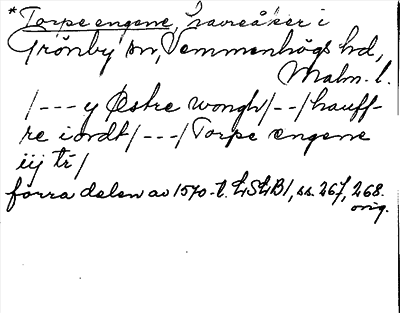 *Torpe engene, havreåker i
Grönby sn, Vemmenhögs hd,
Malm. l.
/---y Østre wongh/--/hauff-
re iordt/---/Torpe engene
iij tr/
förra delen av 1570-t. LSLB1, ss. 267, 268.
orig.